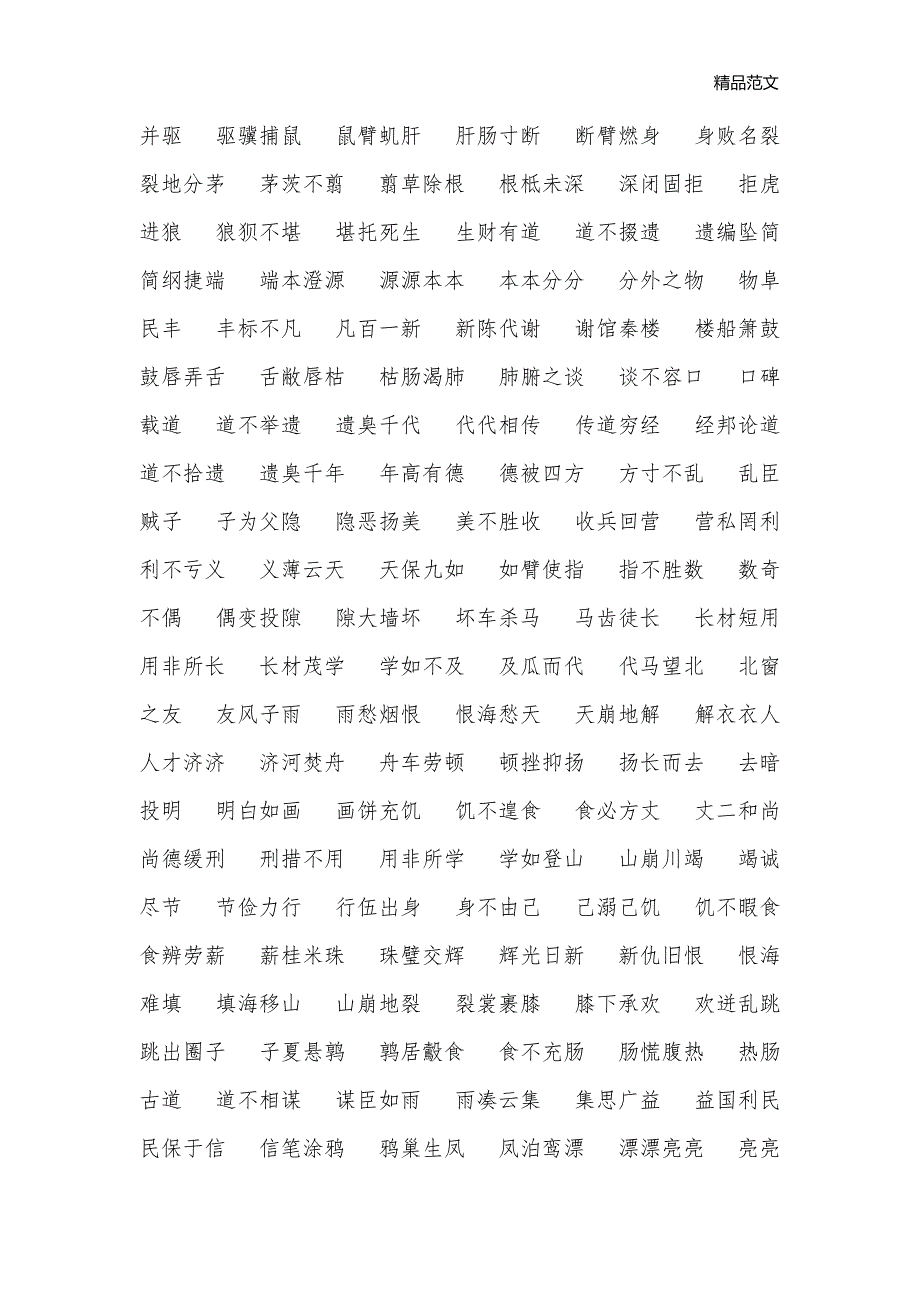 精品范文
并驱 驱骥捕鼠 鼠臂虮肝 肝肠寸断 断臂燃身 身败名裂
裂地分茅 茅茨不翦 翦草除根 根柢未深 深闭固拒 拒虎
进狼 狼狈不堪 堪托死生 生财有道 道不掇遗 遗编坠简
简纲捷端 端本澄源 源源本本 本本分分 分外之物 物阜
民丰 丰标不凡 凡百一新 新陈代谢 谢馆秦楼 楼船箫鼓
鼓唇弄舌 舌敝唇枯 枯肠渴肺 肺腑之谈 谈不容口 口碑
载道 道不举遗 遗臭千代 代代相传 传道穷经 经邦论道
道不拾遗 遗臭千年 年高有德 德被四方 方寸不乱 乱臣
贼子 子为父隐 隐恶扬美 美不胜收 收兵回营 营私罔利
利不亏义 义薄云天 天保九如 如臂使指 指不胜数 数奇
不偶 偶变投隙 隙大墙坏 坏车杀马 马齿徒长 长材短用
用非所长 长材茂学 学如不及 及瓜而代 代马望北 北窗
之友 友风子雨 雨愁烟恨 恨海愁天 天崩地解 解衣衣人
人才济济 济河焚舟 舟车劳顿 顿挫抑扬 扬长而去 去暗
投明 明白如画 画饼充饥 饥不遑食 食必方丈 丈二和尚
尚德缓刑 刑措不用 用非所学 学如登山 山崩川竭 竭诚
尽节 节俭力行 行伍出身 身不由己 己溺己饥 饥不暇食
食辨劳薪 薪桂米珠 珠璧交辉 辉光日新 新仇旧恨 恨海
难填 填海移山 山崩地裂 裂裳裹膝 膝下承欢 欢迸乱跳
跳出圈子 子夏悬鹑 鹑居鷇食 食不充肠 肠慌腹热 热肠
古道 道不相谋 谋臣如雨 雨凑云集 集思广益 益国利民
民保于信 信笔涂鸦 鸦巢生凤 凤泊鸾漂 漂漂亮亮 亮亮